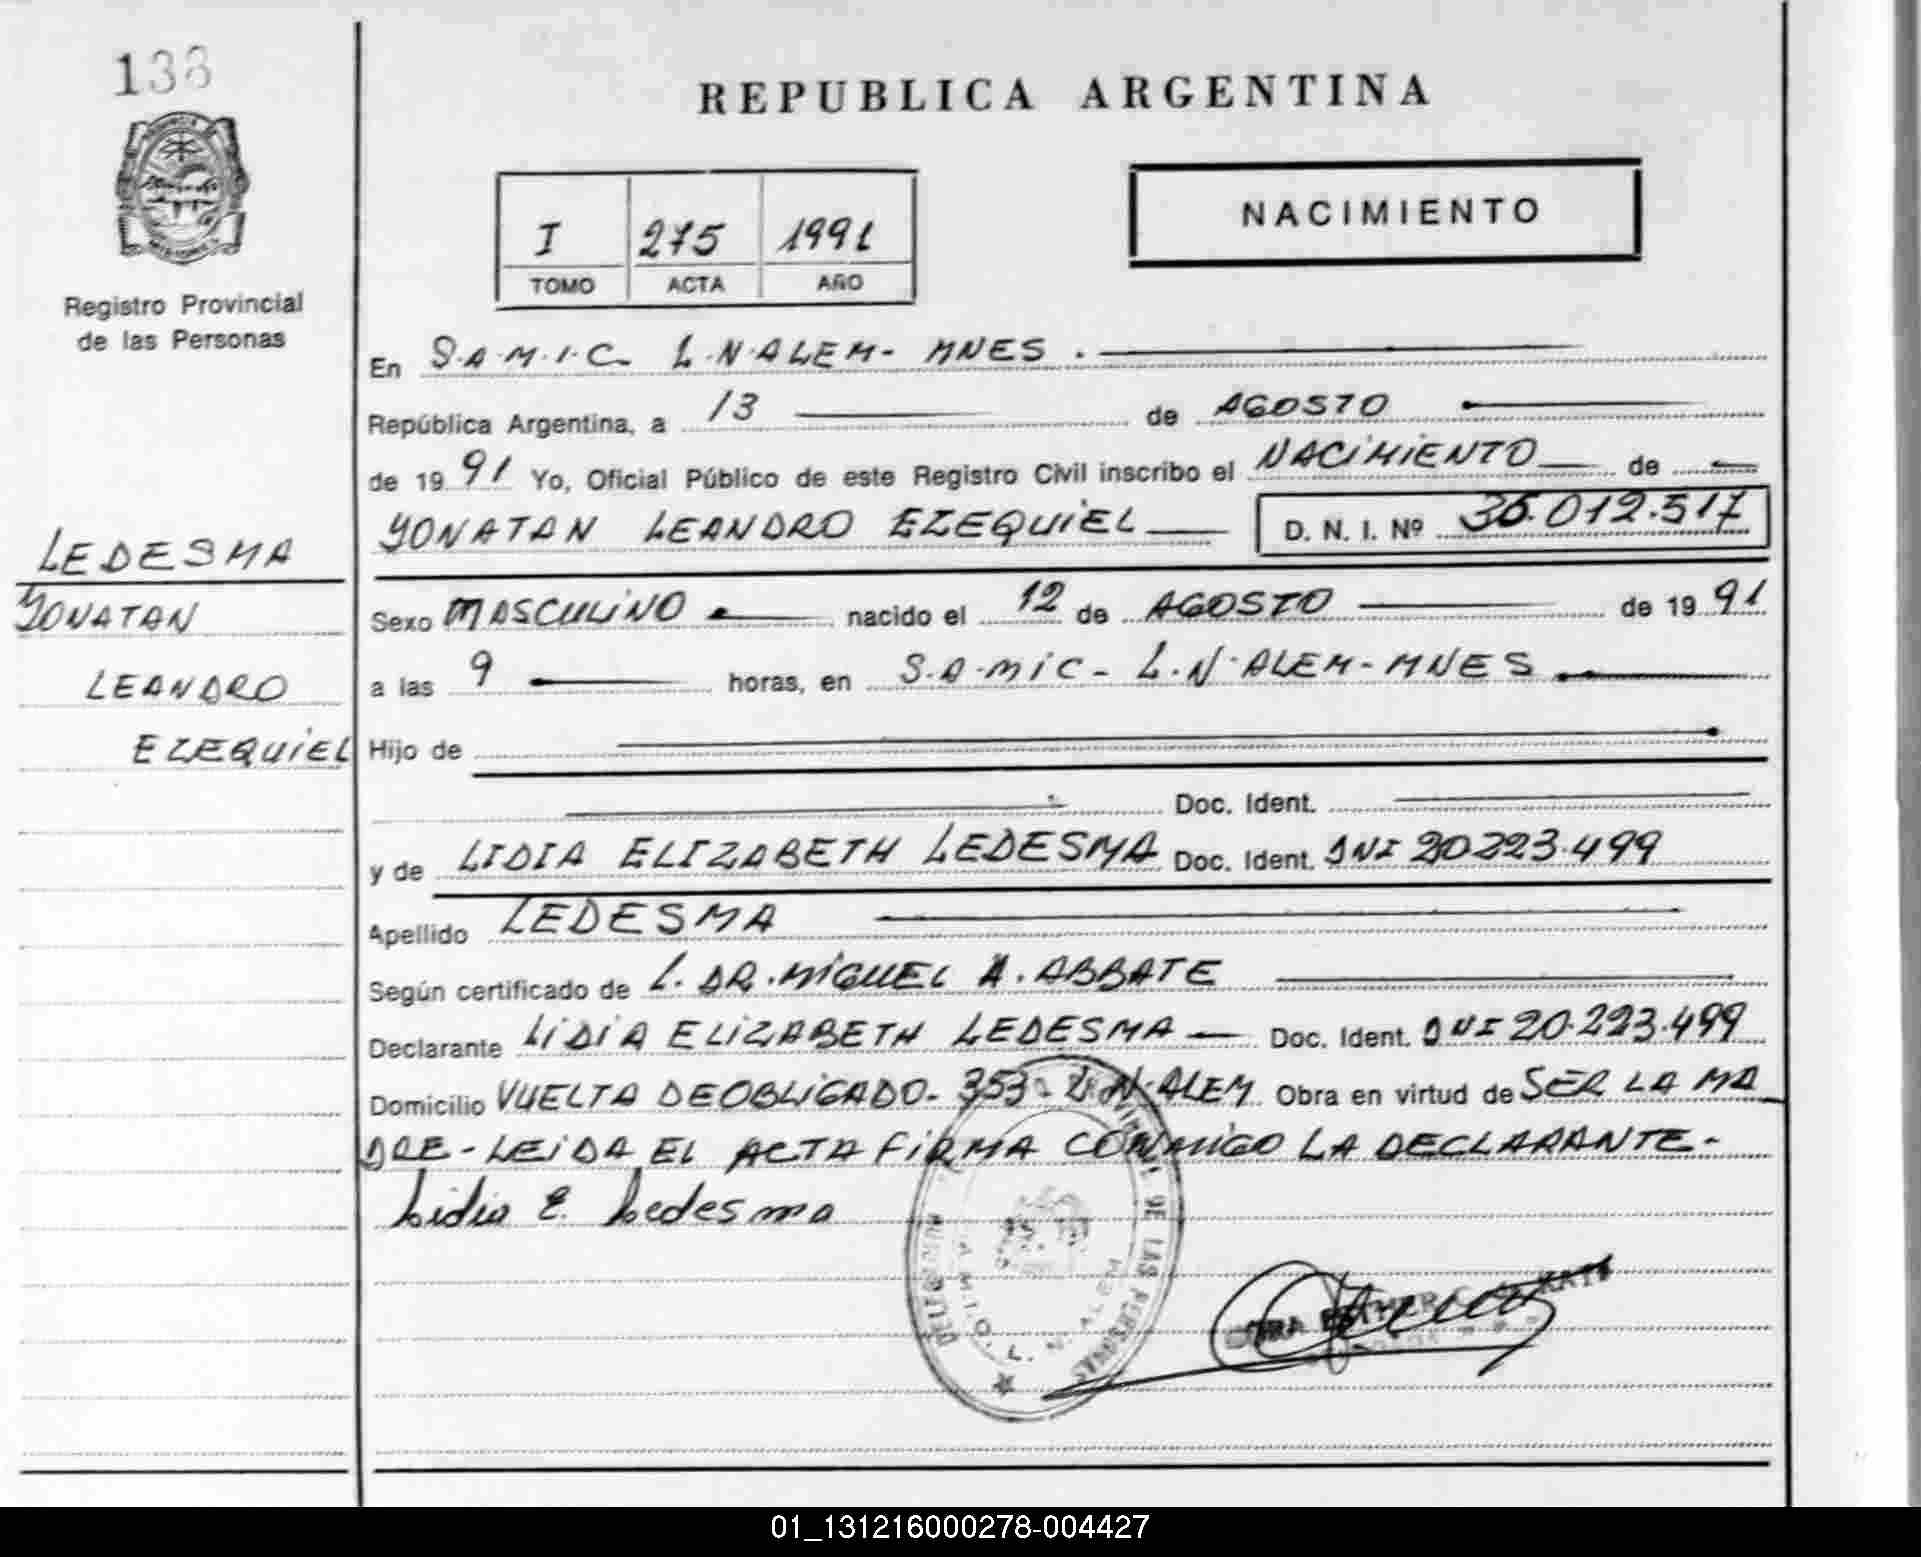 138
REPUBLICA ARGENTINA
NACIMIENTO
I 275 1991
TOMO ACTA AÑO
Registro Provincial
de las Personas
En S.A.M.I.C- L.N.ALEM- MNES .
República Argentina, a 13 de AGOSTO
de 1991 Yo, Oficial Público de este Registro Civil inscribo el NACIMIENTO de
YONATAN LEANDRO EZEQUIEL D. N. I. Nº 36.012.517
LEDESMA
YONATAN
LEANDRO
EZEQUIEL
Sexo MASCULINO nacido el 12 de AGOSTO de 1991
a las 9 horas, en S.A.MIC- L.N.ALEM-MNES
Hijo de
Doc. Ident.
y de LIDIA ELIZABETH LEDESMA Doc. Ident. DNI 20.223.499
Apellido LEDESMA
Según certificado de L. DR. MIGUEL A. ABBATE
Declarante LIDIA ELIZABETH LEDESMA Doc. Ident. DNI 20.223.499
Domicilio VUELTA DEOBLIGADO- 353- L.N.ALEM Obra en virtud de SER LA MA
DRE-LEIDA EL ACTA FIRMA CONMIGO LA DECLARANTE-
Lidia E. Ledesma
DE LAS PERSONAS
01_131216000278-004427